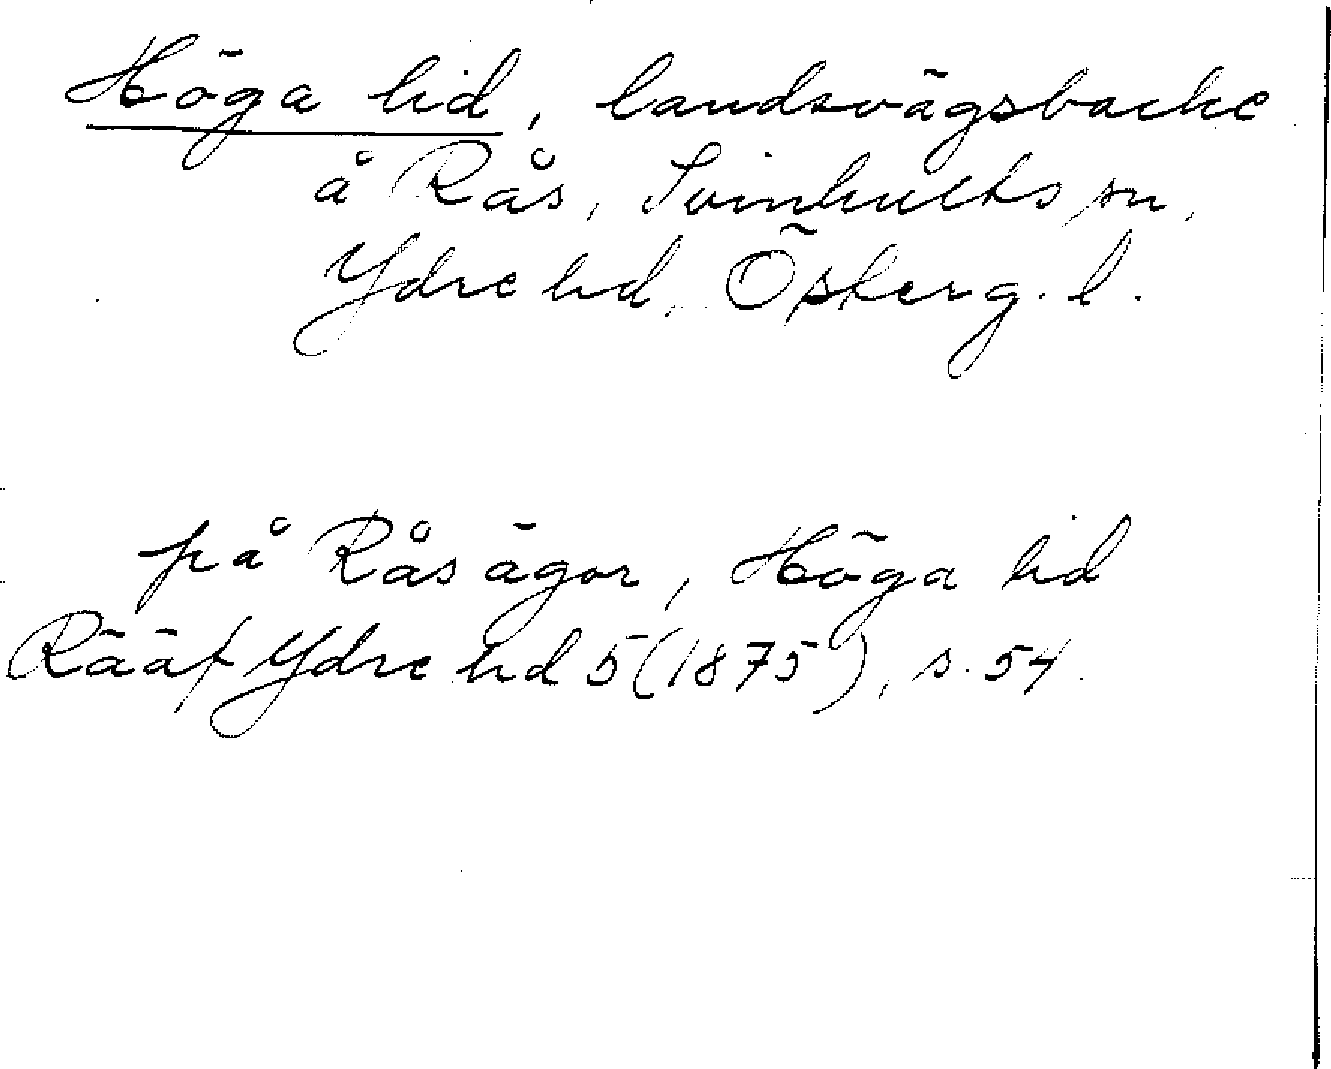 Höga lid, landsvägsbacke
å Rås, Svinhults sn,
Ydre hd, Österg. l.
på Rås ägor, Höga lid
Rääf Ydre hd 5 (1875), s. 54.